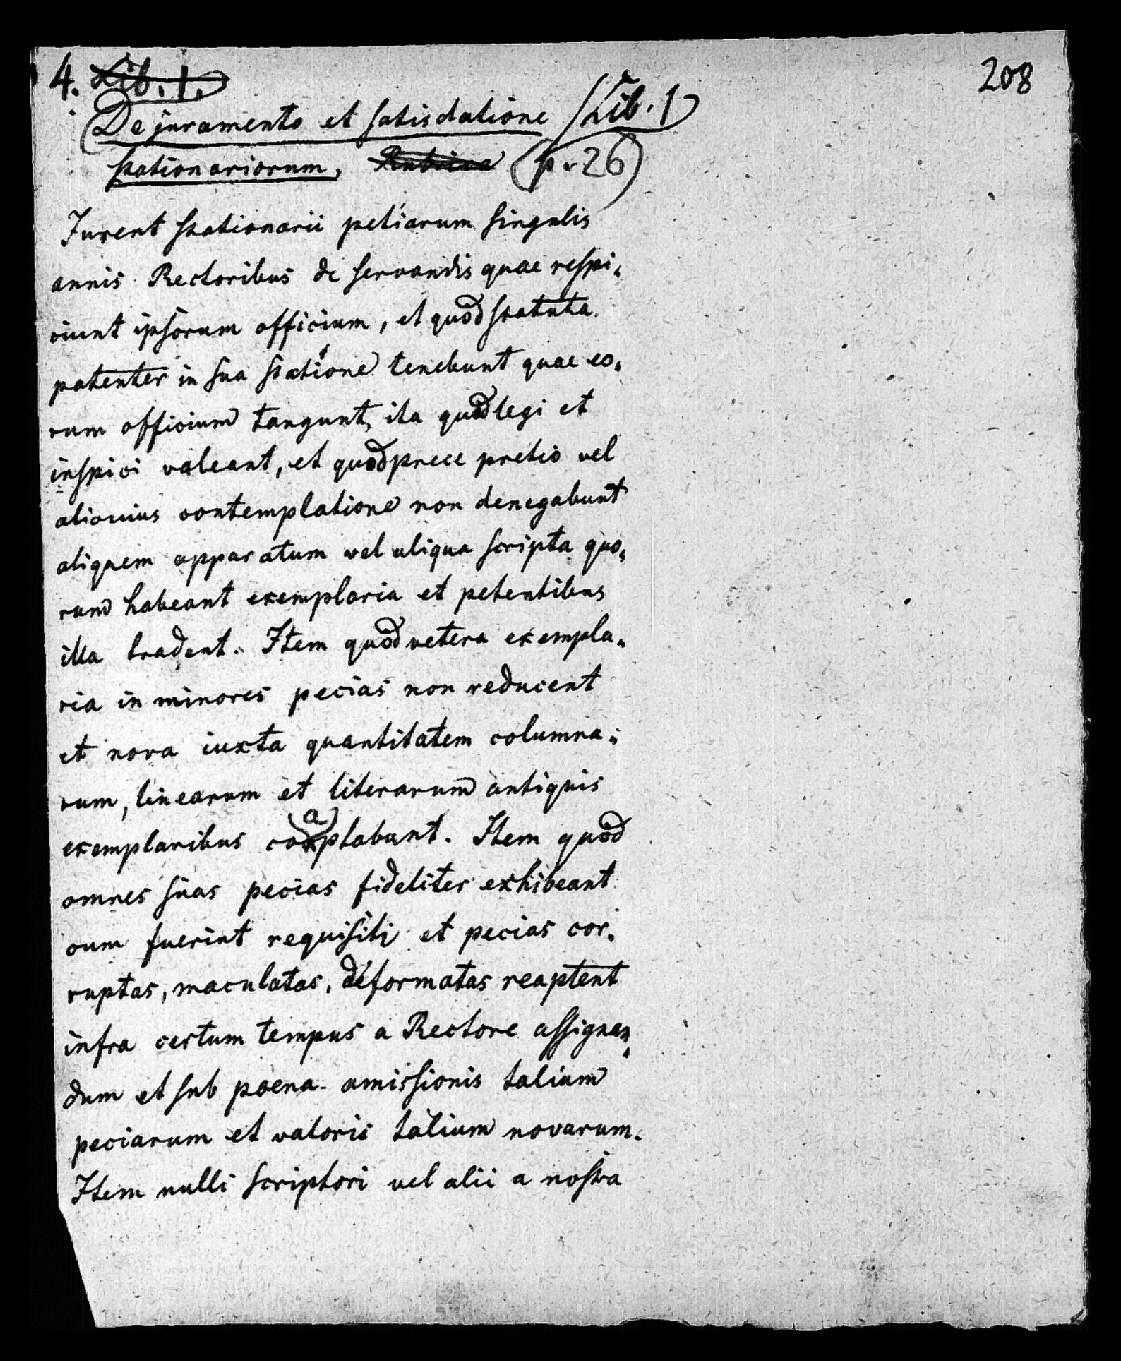 208
4. Lib. 1.
De juramento et satisdatione Lib. 1
stationariorum, Rubrica (p. 26)
Jurent stationarii petiarum singulis
annis Rectoribus de servandis quae respi-
ciunt ipsorum officium, et quod statuta
patenter in sua statione tenebunt quae eo-
rum officium tangunt, ita quod legi et
inspici valeant, et quod prece pretio vel
alicuius contemplatione non denegabunt
aliquem apparatum vel aliqua scripta quo-
rum habeant exemplaria et petentibus
illa tradent. Item quod vetera exempla-
ria in minores pecias non reducent
et nova iuxta quantitatem columna-
rum, linearum et literarum antiquis
exemplaribus coaptabunt. Item quod
omnes suas pecias fideliter exhibeant
cum fuerint requisiti et pecias cor-
ruptas, maculatas, deformatas reaptent
infra certum tempus a Rectore assignan-
dum et sub poena amissionis talium
peciarum et valoris talium novarum.
Item nulli scriptori vel alii a nostra